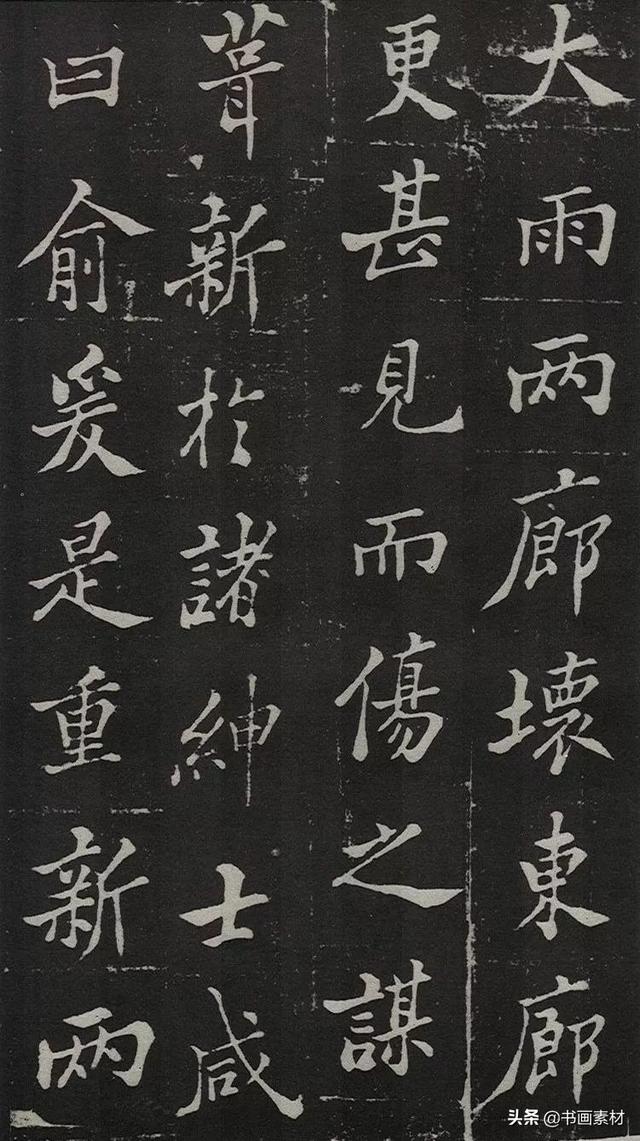 大雨两廊壞東廊
更甚見而傷之謀
葺新於諸紳士咸
曰俞爰是重新两
头条 @书画素材